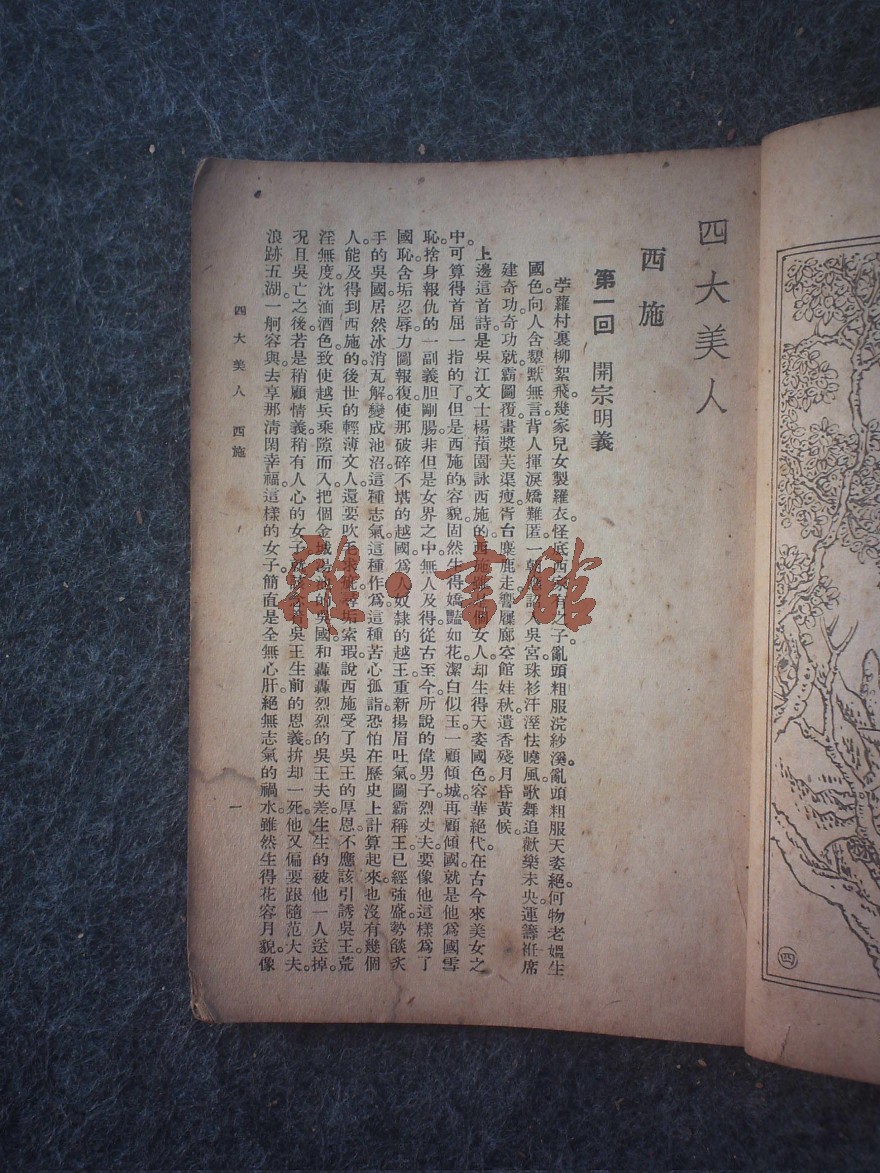 四大美人
西施
第一回 開宗明義
苧蘿村裏柳絮飛。幾家兒女製羅衣。怪底西家有之子。亂頭粗服浣紗溪。亂頭粗服天姿絕。何物老媼生
國色。向人含顰默無言。背人揮淚嬌難匿。一朝應詔入吳宮。珠衫汗溼怯曉風。歌舞追歡樂未央。運籌袵席
建奇功。奇功就。霸圖覆。畫槳芙渠瘦。胥台麋鹿走。響屧廊空館娃秋。遺香殘月昏黃候。
上邊這首詩。是吳江文士楊蘋園詠西施的。西施雖是個女人。却生得天姿國色。容華絕代。在古今來美女之
中。可算得首屈一指的了。但是西施的容貌。固然生得嬌豔如花。潔白似玉。一顧傾城。再顧傾國。就是他爲國雪
恥。捨身報仇的一副義胆剛腸。非但是女界之中。無人及得。從古至今。所說的偉男子。烈丈夫。要像他這樣爲了
國恥。含垢忍辱。力圖報復。使那破碎不堪的越國。爲人奴隸的越王。重新揚眉吐氣。圖霸稱王。已經強盛。勢燄炙
手的吳國。居然冰消瓦解。變成池沼。這種志氣。這種作爲。這種苦心孤詣。恐怕在歷史上計算起來。也沒有幾個
人。能及得到西施的。後世的輕薄文人。還要吹毛求疵。尋垢索瑕。說西施受了吳王的厚恩。不應該引誘吳王。荒
淫無度。沈湎酒色。致使越兵乘隙而入。把個金城湯池的吳國。和轟轟烈烈的吳王夫差。生生的被他一人送掉。
况且吳亡之後。若是稍顧情義。稍有人心的女子。就該念着吳王生前的恩義。拚却一死。他又偏要跟隨范大夫。
浪跡五湖。一舸容與。去享那清閑幸福。這樣的女子。簡直是全無心肝。絕無志氣的禍水。雖然生得花容月貌。像
四大美人 西施
一
雜·書館
四